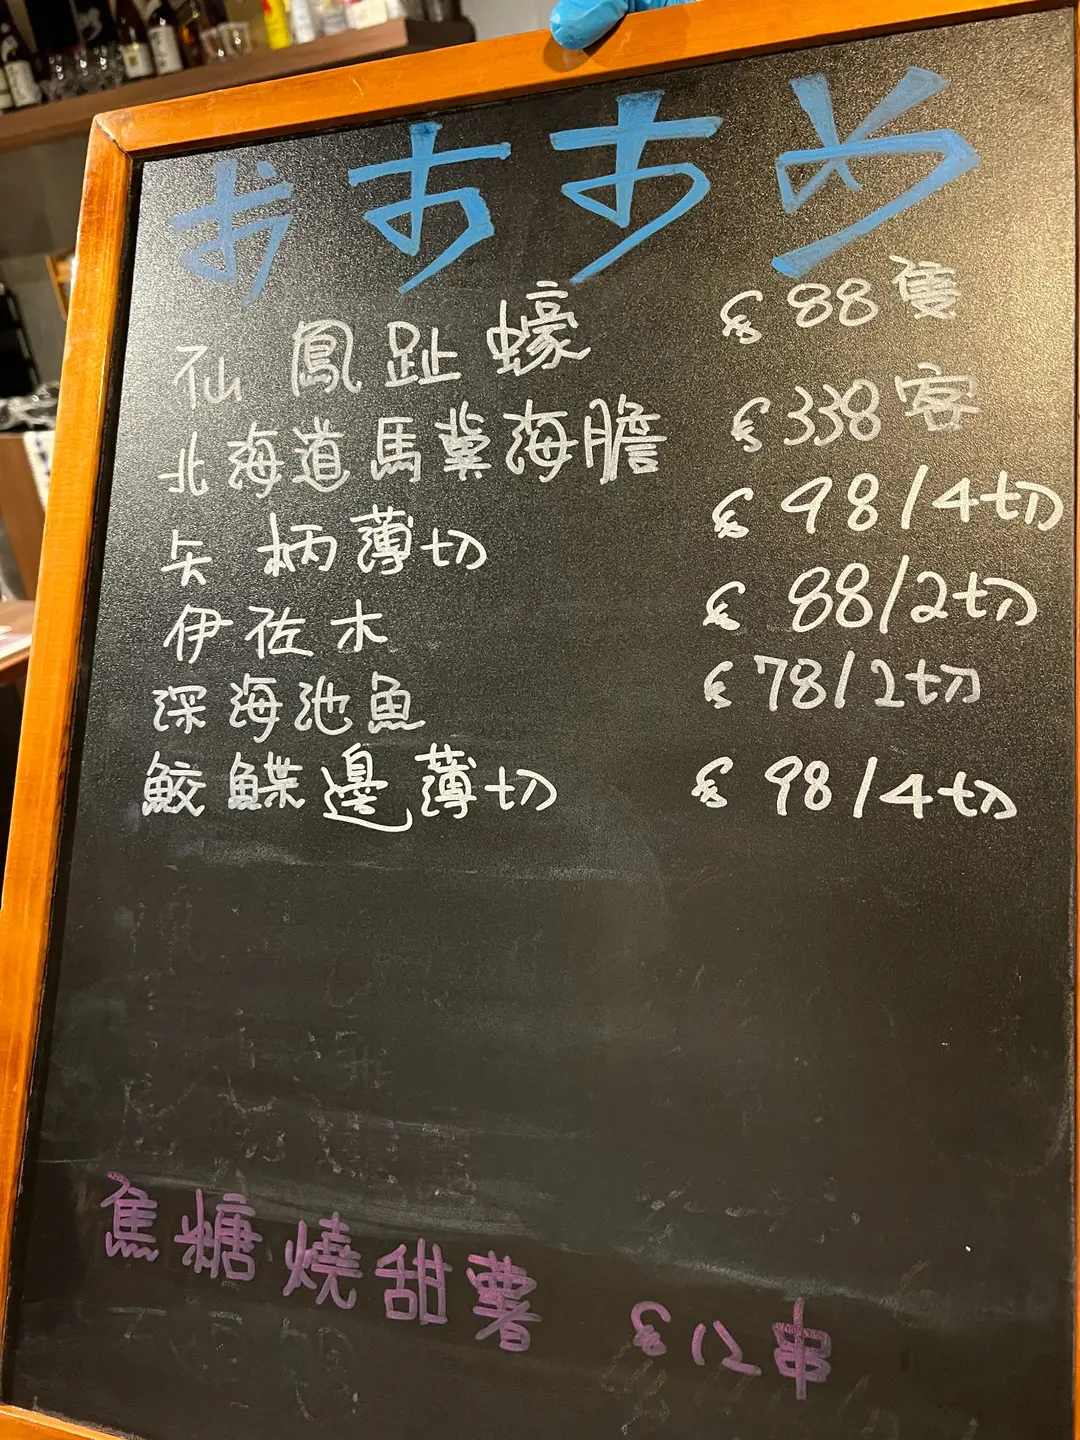 おすすめ
仙鳳趾蠔 $88隻
北海道馬糞海膽 $338客
矢柄薄切 $98/4切
伊佐木 $88/2切
深海池魚 $78/2切
鮫鰈邊薄切 $98/4切
焦糖燒甜薯 $12串